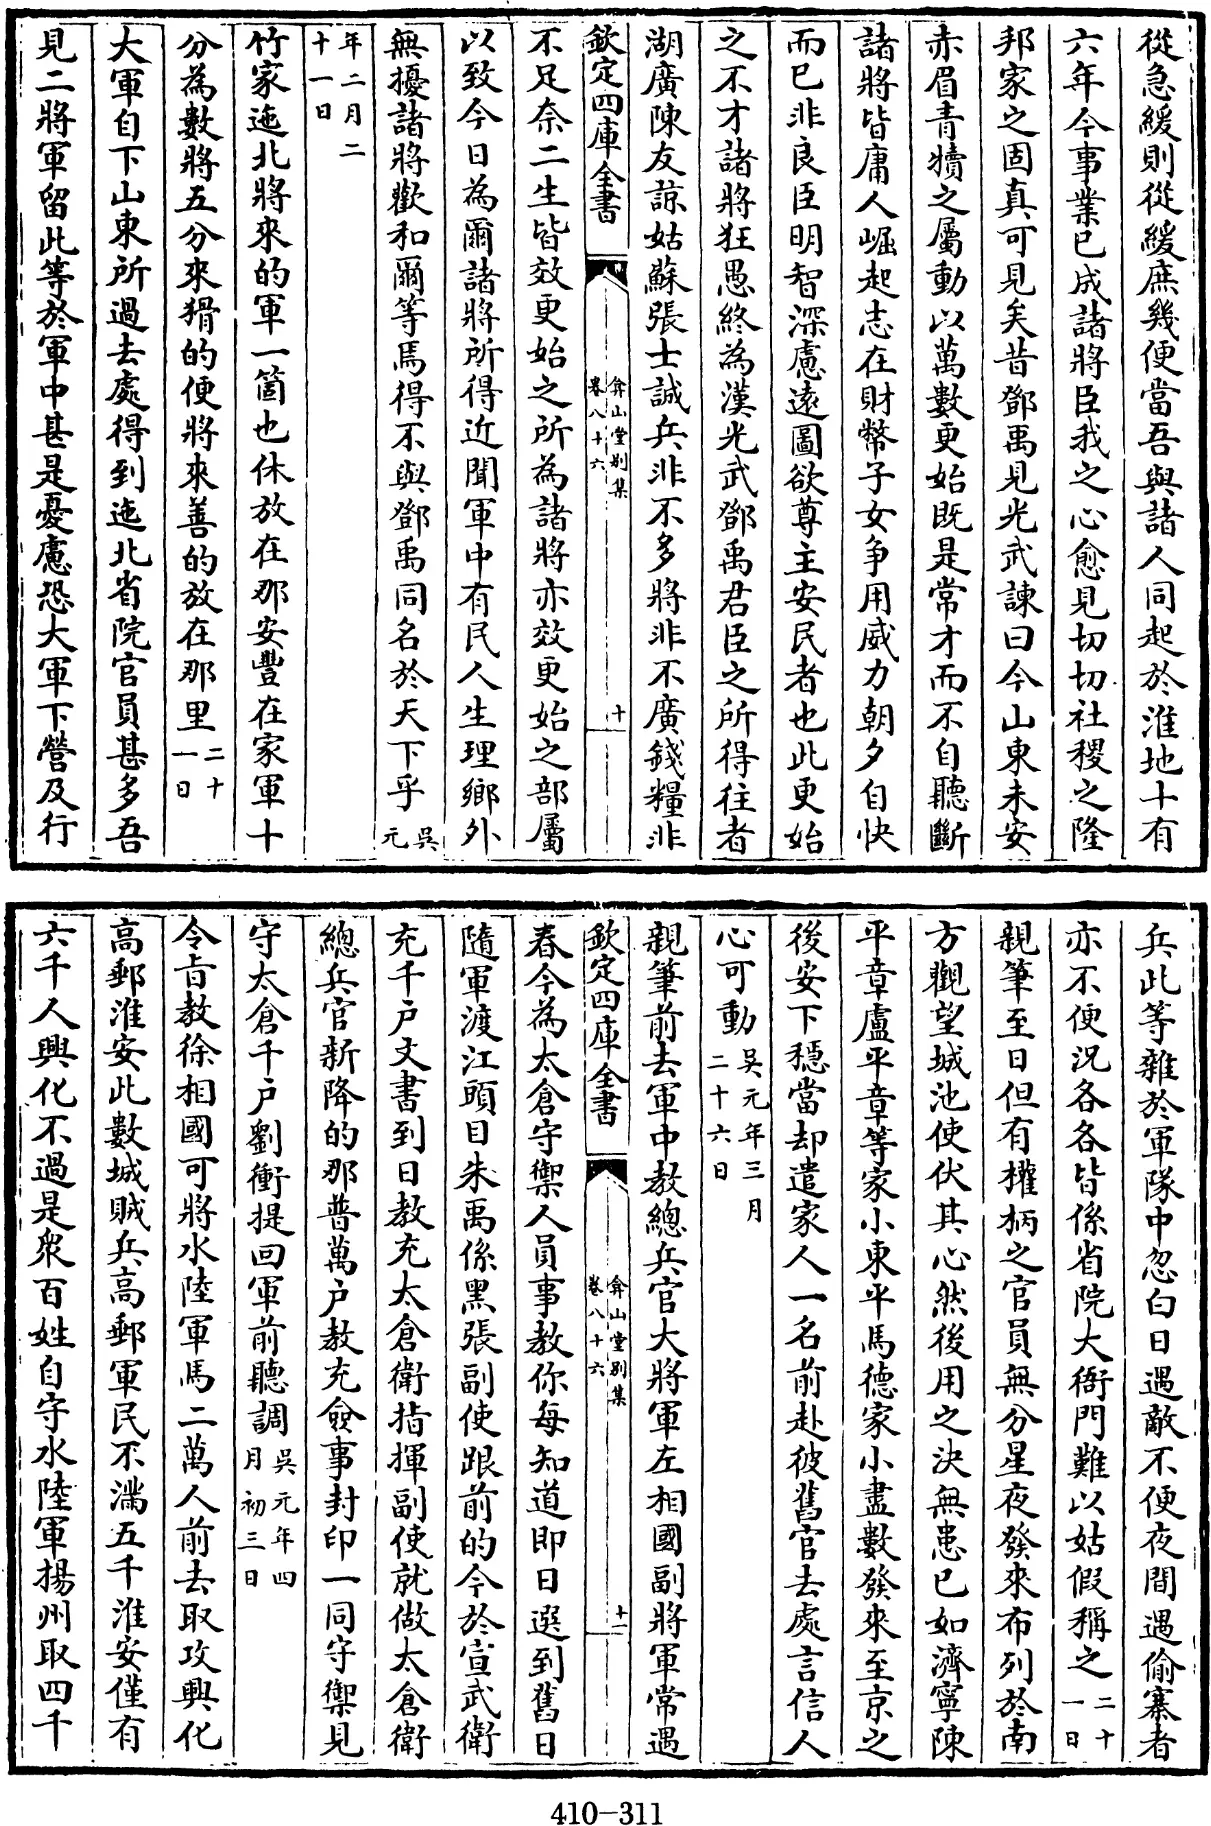 從急緩則從緩庶幾便當吾與諸人同起於淮地十有
六年今事業已成諸將臣我之心愈見切切社稷之隆
邦家之固真可見矣昔鄧禹見光武諫曰今山東未安
赤眉青犢之屬動以萬數更始既是常才而不自聽斷
諸將皆庸人崛起志在財幣子女争用威力朝夕自快
而已非良臣明智深慮遠圖欲尊主安民者也此更始
之不才諸將狂愚終為漢光武鄧禹君臣之所得往者
湖廣陳友諒姑蘇張士誠兵非不多將非不廣錢糧非
欽定四庫全書
弇山堂别集
卷八十六
十
不足奈二生皆效更始之所為諸將亦效更始之部屬
以致今日為爾諸將所得近聞軍中有民人生理鄉外
無擾諸將歡和爾等焉得不與鄧禹同名於天下乎吳元
年二月二十一日
竹家迤北將來的軍一箇也休放在那安豐在家軍十
分為數將五分來猾的便將來善的放在那里二十一日
大軍自下山東所過去處得到迤北省院官員甚多吾
見二將軍留此等於軍中甚是憂慮恐大軍下營及行
兵此等雜於軍隊中忽白日遇敵不便夜間遇偷寨者
亦不便況各各皆係省院大衙門難以姑假稱之二十一日
親筆至日但有權柄之官員無分星夜發來布列於南
方觀望城池使伏其心然後用之決無患已如濟寧陳
平章盧平章等家小東平馬德家小盡數發來至京之
後安下穩當却遣家人一名前赴彼舊官去處言信人
心可動吳元年三月二十六日
親筆前去軍中教總兵官大將軍左相國副將軍常遇
欽定四庫全書
弇山堂别集
卷八十六
十一
春今為太倉守禦人員事教你每知道即日選到舊日
隨軍渡江頭目朱禹係黑張副使跟前的今於宣武衛
充千户文書到日教充太倉衛指揮副使就做太倉衛
總兵官新降的那普萬户教充僉事封印一同守禦見
守太倉千户劉衝提回軍前聽調吳元年四月初三日
令旨教徐相國可將水陸軍馬二萬人前去取攻興化
高郵淮安此數城賊兵高郵軍民不滿五千淮安僅有
六千人興化不過是衆百姓自守水陸軍揚州取四千
410-311